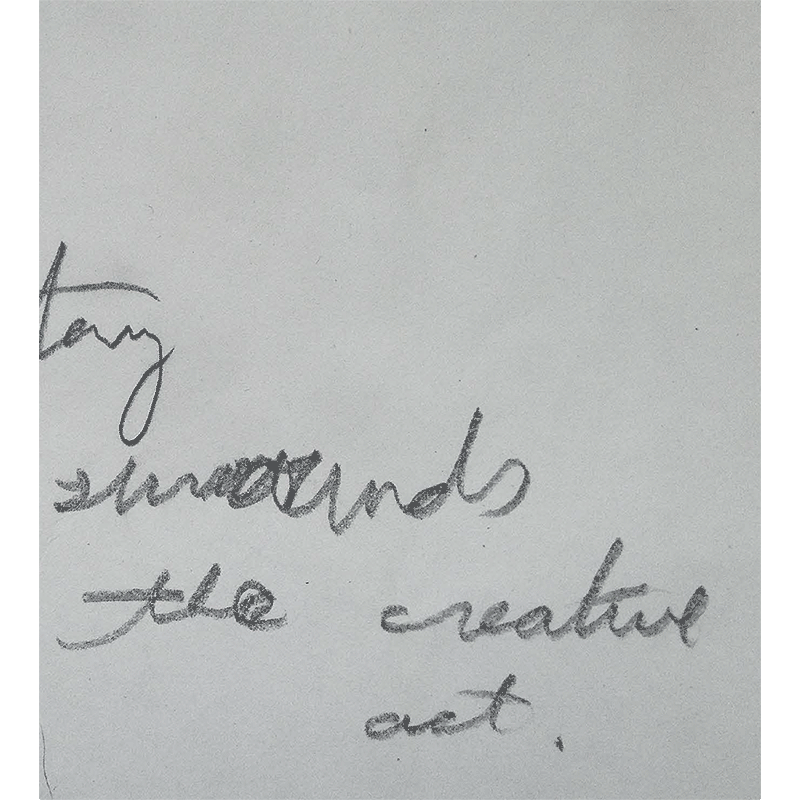 surrounds
the creative
act.